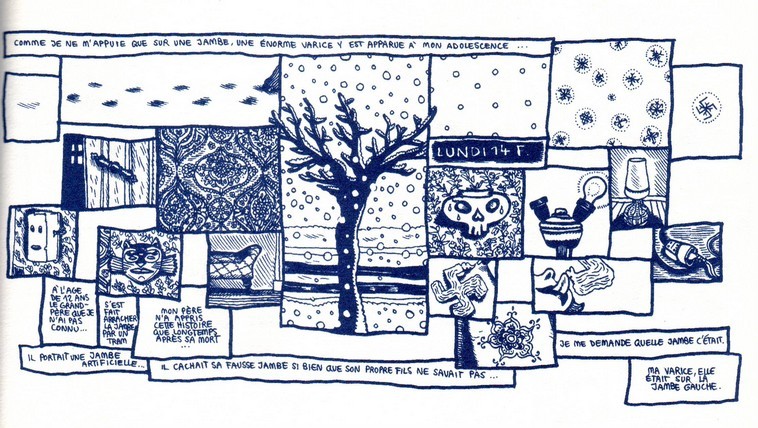 COMME JE NE M'APPUIE QUE SUR UNE JAMBE, UNE ÉNORME VARICE Y EST APPARUE À MON ADOLESCENCE ...
LUNDI 14 F.
À L'AGE
DE 12 ANS
LE GRAND-
PÈRE QUE JE
N'AI PAS
CONNU...
S'EST
FAIT
ARRACHER
LA JAMBE
PAR UN
TRAM
MON PÈRE
N'A APPRIS
CETTE HISTOIRE
QUE LONGTEMPS
APRÈS SA MORT
...
IL PORTAIT UNE JAMBE
ARTIFICIELLE...
IL CACHAIT SA FAUSSE JAMBE SI BIEN QUE SON PROPRE FILS NE SAVAIT PAS ...
JE ME DEMANDE QUELLE JAMBE C'ÉTAIT.
MA VARICE, ELLE
ÉTAIT SUR LA
JAMBE GAUCHE.